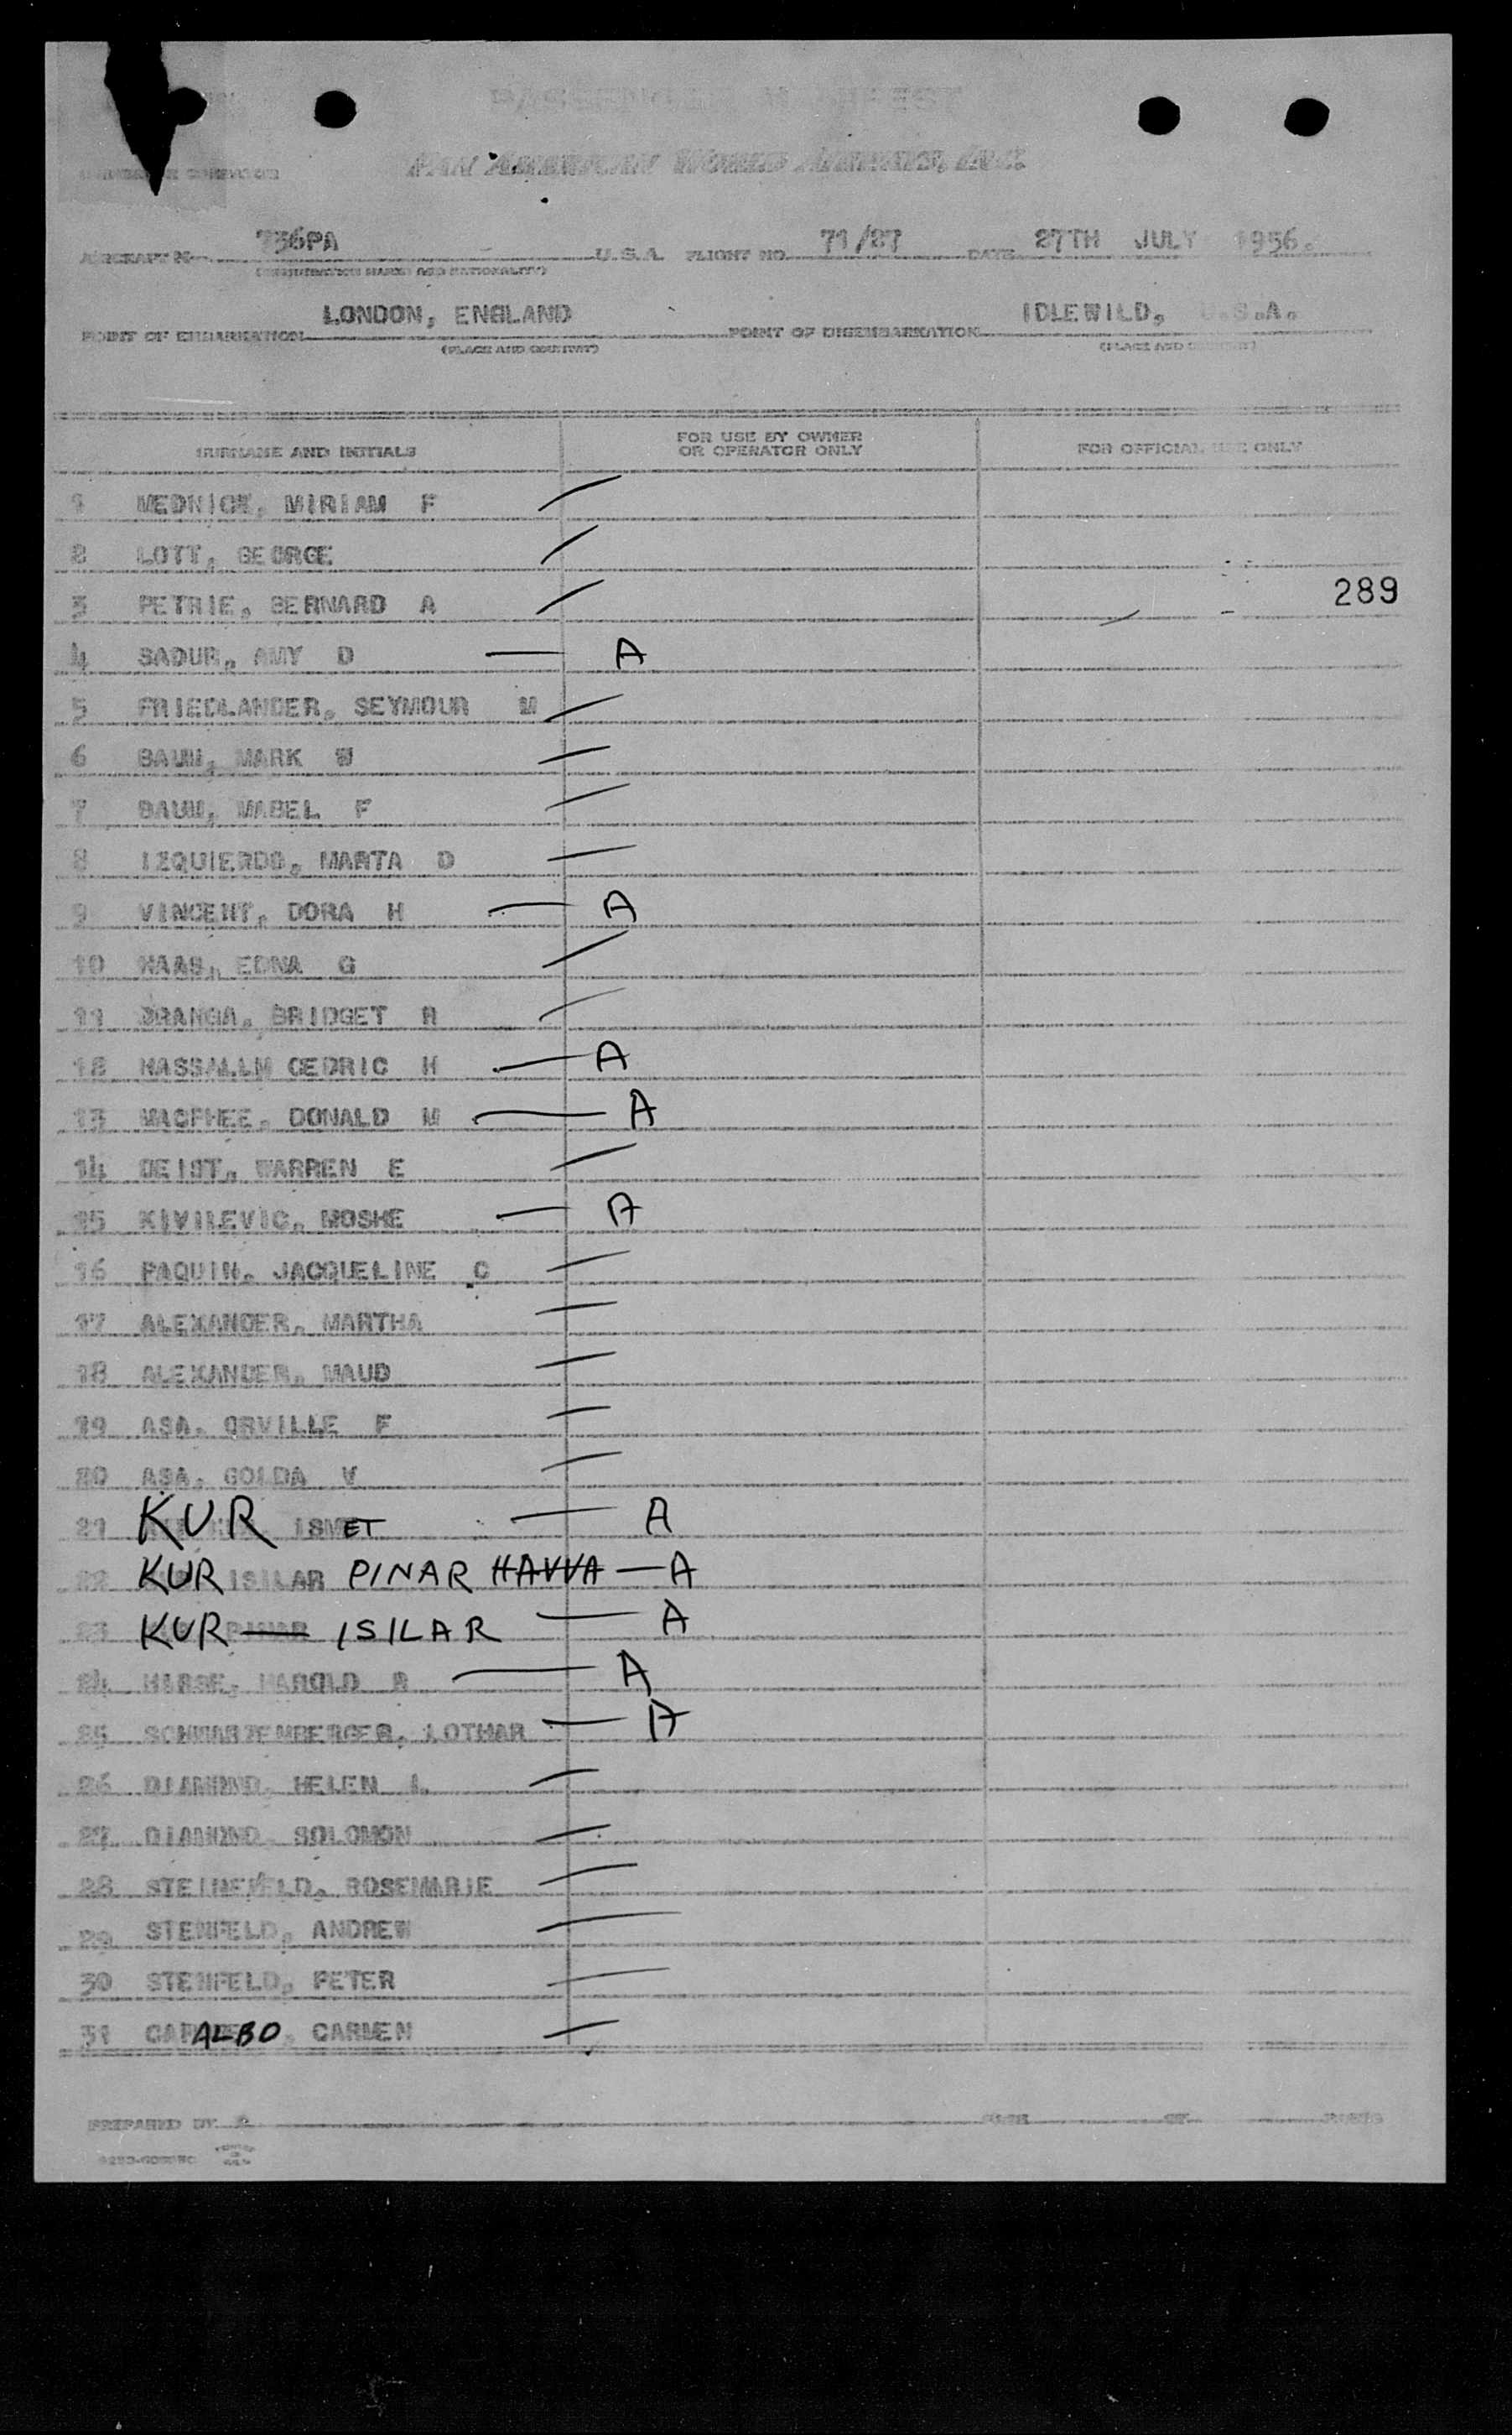 PASSENGER MANIFEST
PAN AMERICAN WORLD AIRWAYS, INC.
AIRCRAFT N 736PA U.S.A. FLIGHT NO. 71/27 DATE 27TH JULY 1956.
(REGISTRATION MARKS AND NATIONALITY)
POINT OF EMBARKATION LONDON, ENGLAND POINT OF DISEMBARKATION IDLEWILD, U.S.A.
(PLACE AND COUNTRY) (PLACE AND COUNTRY)
SURNAME AND INITIALS FOR USE BY OWNER OR OPERATOR ONLY FOR OFFICIAL USE ONLY
1 MEDNICK, MIRIAM F
2 LOTT, GEORGE
3 PETRIE, BERNARD A 289
4 SADUR, AMY D — A
5 FRIEDLANDER, SEYMOUR M
6 BAUM, MARK W
7 BAUM, MABEL F
8 IZQUIERDO, MARTA D
9 VINCENT, DORA H — A
10 HAAS, EDNA G
11 BRANGA, BRIDGET R
12 HASSALLM CEDRIC H — A
13 MACPHEE, DONALD M — A
14 DEIST, WARREN E
15 KIVILEVIC, MOSHE — A
16 PAQUIN, JACQUELINE C
17 ALEXANDER, MARTHA
18 ALEXANDER, MAUD
19 ASA, ORVILLE F
20 ASA, GOLDA V
21 KUR ISMET — A
22 KUR ISILAR PINAR HAVVA — A
23 KUR — ISILAR — A
24 HAROLD R — A
25 SCHWARZENBERGER, LOTHAR — A
26 DIAMOND, HELEN L
27 DIAMOND, SOLOMON
28 STEINFELD, ROSEMARIE
29 STENFELD, ANDREW
30 STENFELD, PETER
31 ALBO, CARMEN
PREPARED BY